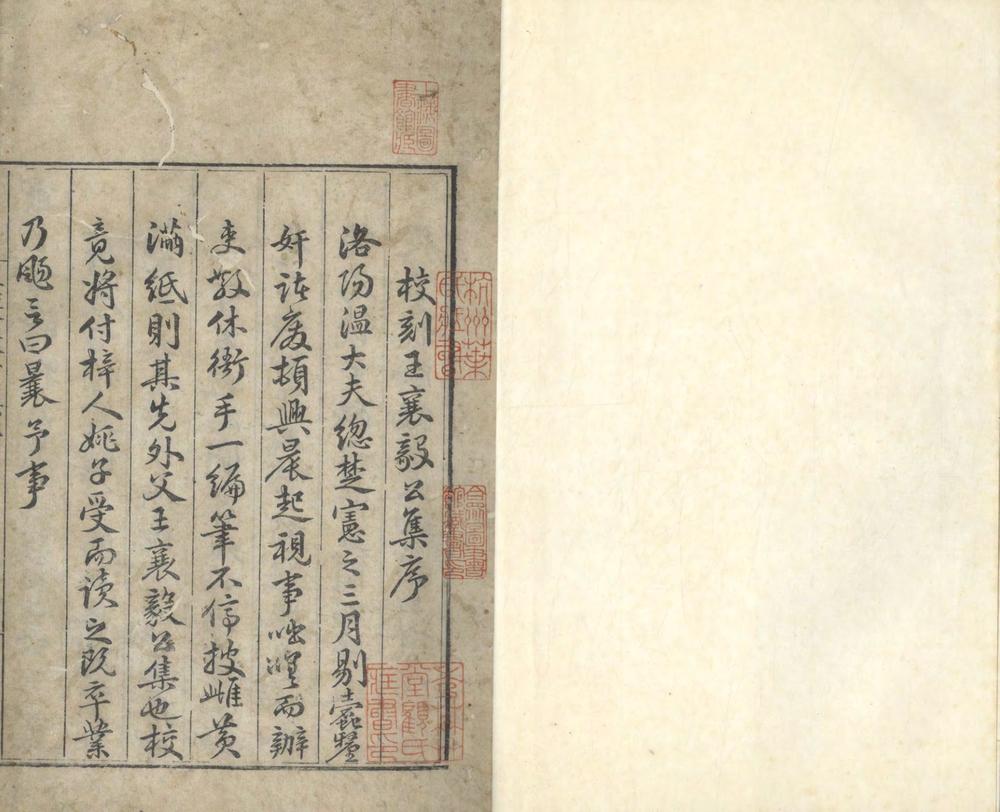 校刻王襄毅公集序
洛陽温大夫總楚憲之三月剔蠹釐
奸詆廢頓興晨起視事咄嗟而辦
吏散休衙手一編筆不停披雌黄
滿紙則其先外父王襄毅公集也校
竟將付梓人姚子受而讀之既卒業
乃颺言曰曩予事
杭州葉
氏藏書